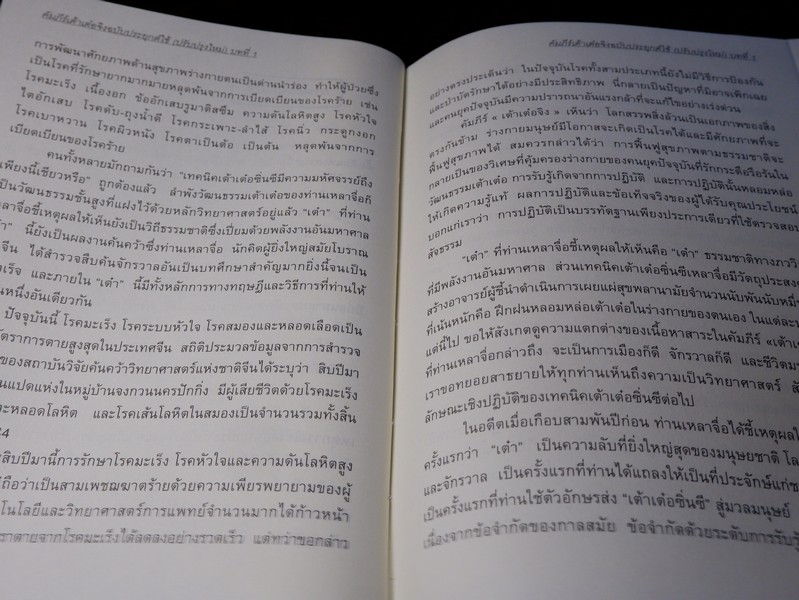 คัมภีร์เต้าเต๋อจิงฉบับประยุกต์ใช้ (ปรับปรุงใหม่) บทที่ 1
การพัฒนาศักยภาพด้านสุขภาพร่างกายตนเป็นด่านนำร่อง ทำให้ผู้ป่วยซึ่ง
เป็นโรคที่รักษายากมากมายหลุดพ้นจากการเบียดเบียนของโรคร้าย เช่น
โรคมะเร็ง เนื้องอก ข้ออักเสบรูมาติสซึ่ม ความดันโลหิตสูง โรคหัวใจ
ไตอักเสบ โรคตับ-ถุงน้ำดี โรคกระเพาะ-ลำไส้ โรคนิ่ว กระดูกงอก
โรคเบาหวาน โรคผิวหนัง โรคตาเป็นต้อ เป็นต้น หลุดพ้นจากการ
เบียดเบียนของโรคร้าย
คนทั้งหลายมักถามกันว่า "เทคนิคเต้าเต๋อซิ่นซีมีความมหัศจรรย์ถึง
เพียงนี้เชียวหรือ" ถูกต้องแล้ว ลำพังวัฒนธรรมเต้าเต๋อของท่านเหลาจื่อก็
เป็นวัฒนธรรมชั้นสูงที่แฝงไว้ด้วยหลักวิทยาศาสตร์อยู่แล้ว "เต๋า" ที่ท่าน
เหลาจื่อชี้เหตุผลให้เห็นยังเป็นวิถีธรรมชาติซึ่งเปี่ยมด้วยพลังงานอันมหาศาล
" นี้ยังเป็นผลงานค้นคว้าซึ่งท่านเหลาจื่อ นักคิดผู้ยิ่งใหญ่สมัยโบราณ
จีน ได้สำรวจสืบค้นจักรวาลอันเป็นบทศึกษาสำคัญมากยิ่งนี้จนเป็น
เร็จ และภายใน "เต๋า" นี้มีทั้งหลักการทางทฤษฎีและวิธีการที่ท่านให้
หนึ่งอันเดียวกัน
ปัจจุบันนี้ โรคมะเร็ง โรคระบบหัวใจ โรคสมองและหลอดเลือดเป็น
อัตราการตายสูงสุดในประเทศจีน สถิติประมวลข้อมูลจากการสำรวจ
ของสถาบันวิจัยค้นคว้าวิทยาศาสตร์แห่งชาติจีนได้ระบุว่า สิบปีมา
แปดแห่งในหมู่บ้านจงกวนนครปักกิ่ง มีผู้เสียชีวิตด้วยโรคมะเร็ง
และหลอดโลหิต และโรคเส้นโลหิตในสมองเป็นจำนวนรวมทั้งสิ้น
4
สิบปีมานี้การรักษาโรคมะเร็ง โรคหัวใจและความดันโลหิตสูง
ถือว่าเป็นสามเพชฌฆาตร้ายด้วยความเพียรพยายามของผู้
โนโลยีและวิทยาศาสตร์การแพทย์จำนวนมากได้ก้าวหน้า
ราตายจากโรคมะเร็งได้ลดลงอย่างรวดเร็ว แต่ทว่าขอกล่าว
คัมภีร์เต้าเต๋อจิงฉบับประยุกต์ใช้ (ปรับปรุงใหม่) บทที่ 1
อย่างตรงประเด็นว่า ในปัจจุบันโรคทั้งสามประเภทนี้ยังไม่มีวิธีการป้องกัน
และบำบัดรักษาได้อย่างมีประสิทธิภาพ นี่กลายเป็นปัญหาที่มิอาจเพิกเฉย
และคนยุคปัจจุบันมีความปรารถนาอันแรงกล้าที่จะแก้ไขอย่างเร่งด่วน
คัมภีร์ « เต้าเต๋อจิง » เห็นว่า โลกสรรพสิ่งล้วนเป็นเอกภาพของสิ่ง
ตรงกันข้าม ร่างกายมนุษย์มีโอกาสจะเกิดเป็นโรคได้และมีศักยภาพที่จะ
ฟื้นฟูสุขภาพได้ สมควรกล่าวได้ว่า การฟื้นฟูสุขภาพตามธรรมชาติจะ
กลายเป็นของวิเศษที่คุ้มครองร่างกายของคนยุคปัจจุบันที่รักกระตือรือร้นใน
วัฒนธรรมเต้าเต๋อ การรับรู้เกิดจากการปฏิบัติ และการปฏิบัตินั้นหลอมหล่อ
ให้เกิดความรู้แท้ ผลการปฏิบัติและข้อเท็จจริงของผู้ได้รับคุณประโยชน์
บอกแก่เราว่า การปฏิบัติเป็นบรรทัดฐานเพียงประการเดียวที่ใช้ตรวจสอบ
สัจธรรม
"เต๋า" ที่ท่านเหลาจื่อชี้เหตุผลให้เห็นคือ "เต๋า" ธรรมชาติทางภาววิ
ที่มีพลังงานอันมหาศาล ส่วนเทคนิคเต้าเต๋อซิ่นซีเหลาจื่อมีวัตถุประสง
สร้างอาจารย์ผู้ชี้นำดำเนินการเผยแผ่สุขพลานามัยจำนวนนับพันนับหมื่
ที่เน้นหนักคือ ฝึกฝนหลอมหล่อเต้าเต๋อในร่างกายของตนเอง ในแต่ละบ
แต่นี้ไป ขอให้สังเกตดูความแตกต่างของเนื้อหาสาระในคัมภีร์ «เต้าเต
ที่ท่านเหลาจื่อกล่าวถึง จะเป็นการเมืองก็ดี จักรวาลก็ดี และชีวิตมนุ
เราขอทยอยสาธยายให้ทุกท่านเห็นถึงความเป็นวิทยาศาสตร์ สั
ลักษณะเชิงปฏิบัติของเทคนิคเต้าเต๋อซิ่นซีต่อไป
ในอดีตเมื่อเกือบสามพันปีก่อน ท่านเหลาจื่อได้ชี้เหตุผลใ
ครั้งแรกว่า "เต๋า" เป็นความลับที่ยิ่งใหญ่สุดของมนุษยชาติ โล
และจักรวาล เป็นครั้งแรกที่ท่านได้แถลงให้เป็นที่ประจักษ์แก่ช
เป็นครั้งแรกที่ท่านใช้ตัวอักษรส่ง "เต้าเต๋อซิ่นซี" สู่มวลมนุษย์
เนื่องจากข้อจำกัดของกาลสมัย ข้อจำกัดด้วยระดับการรับรู้